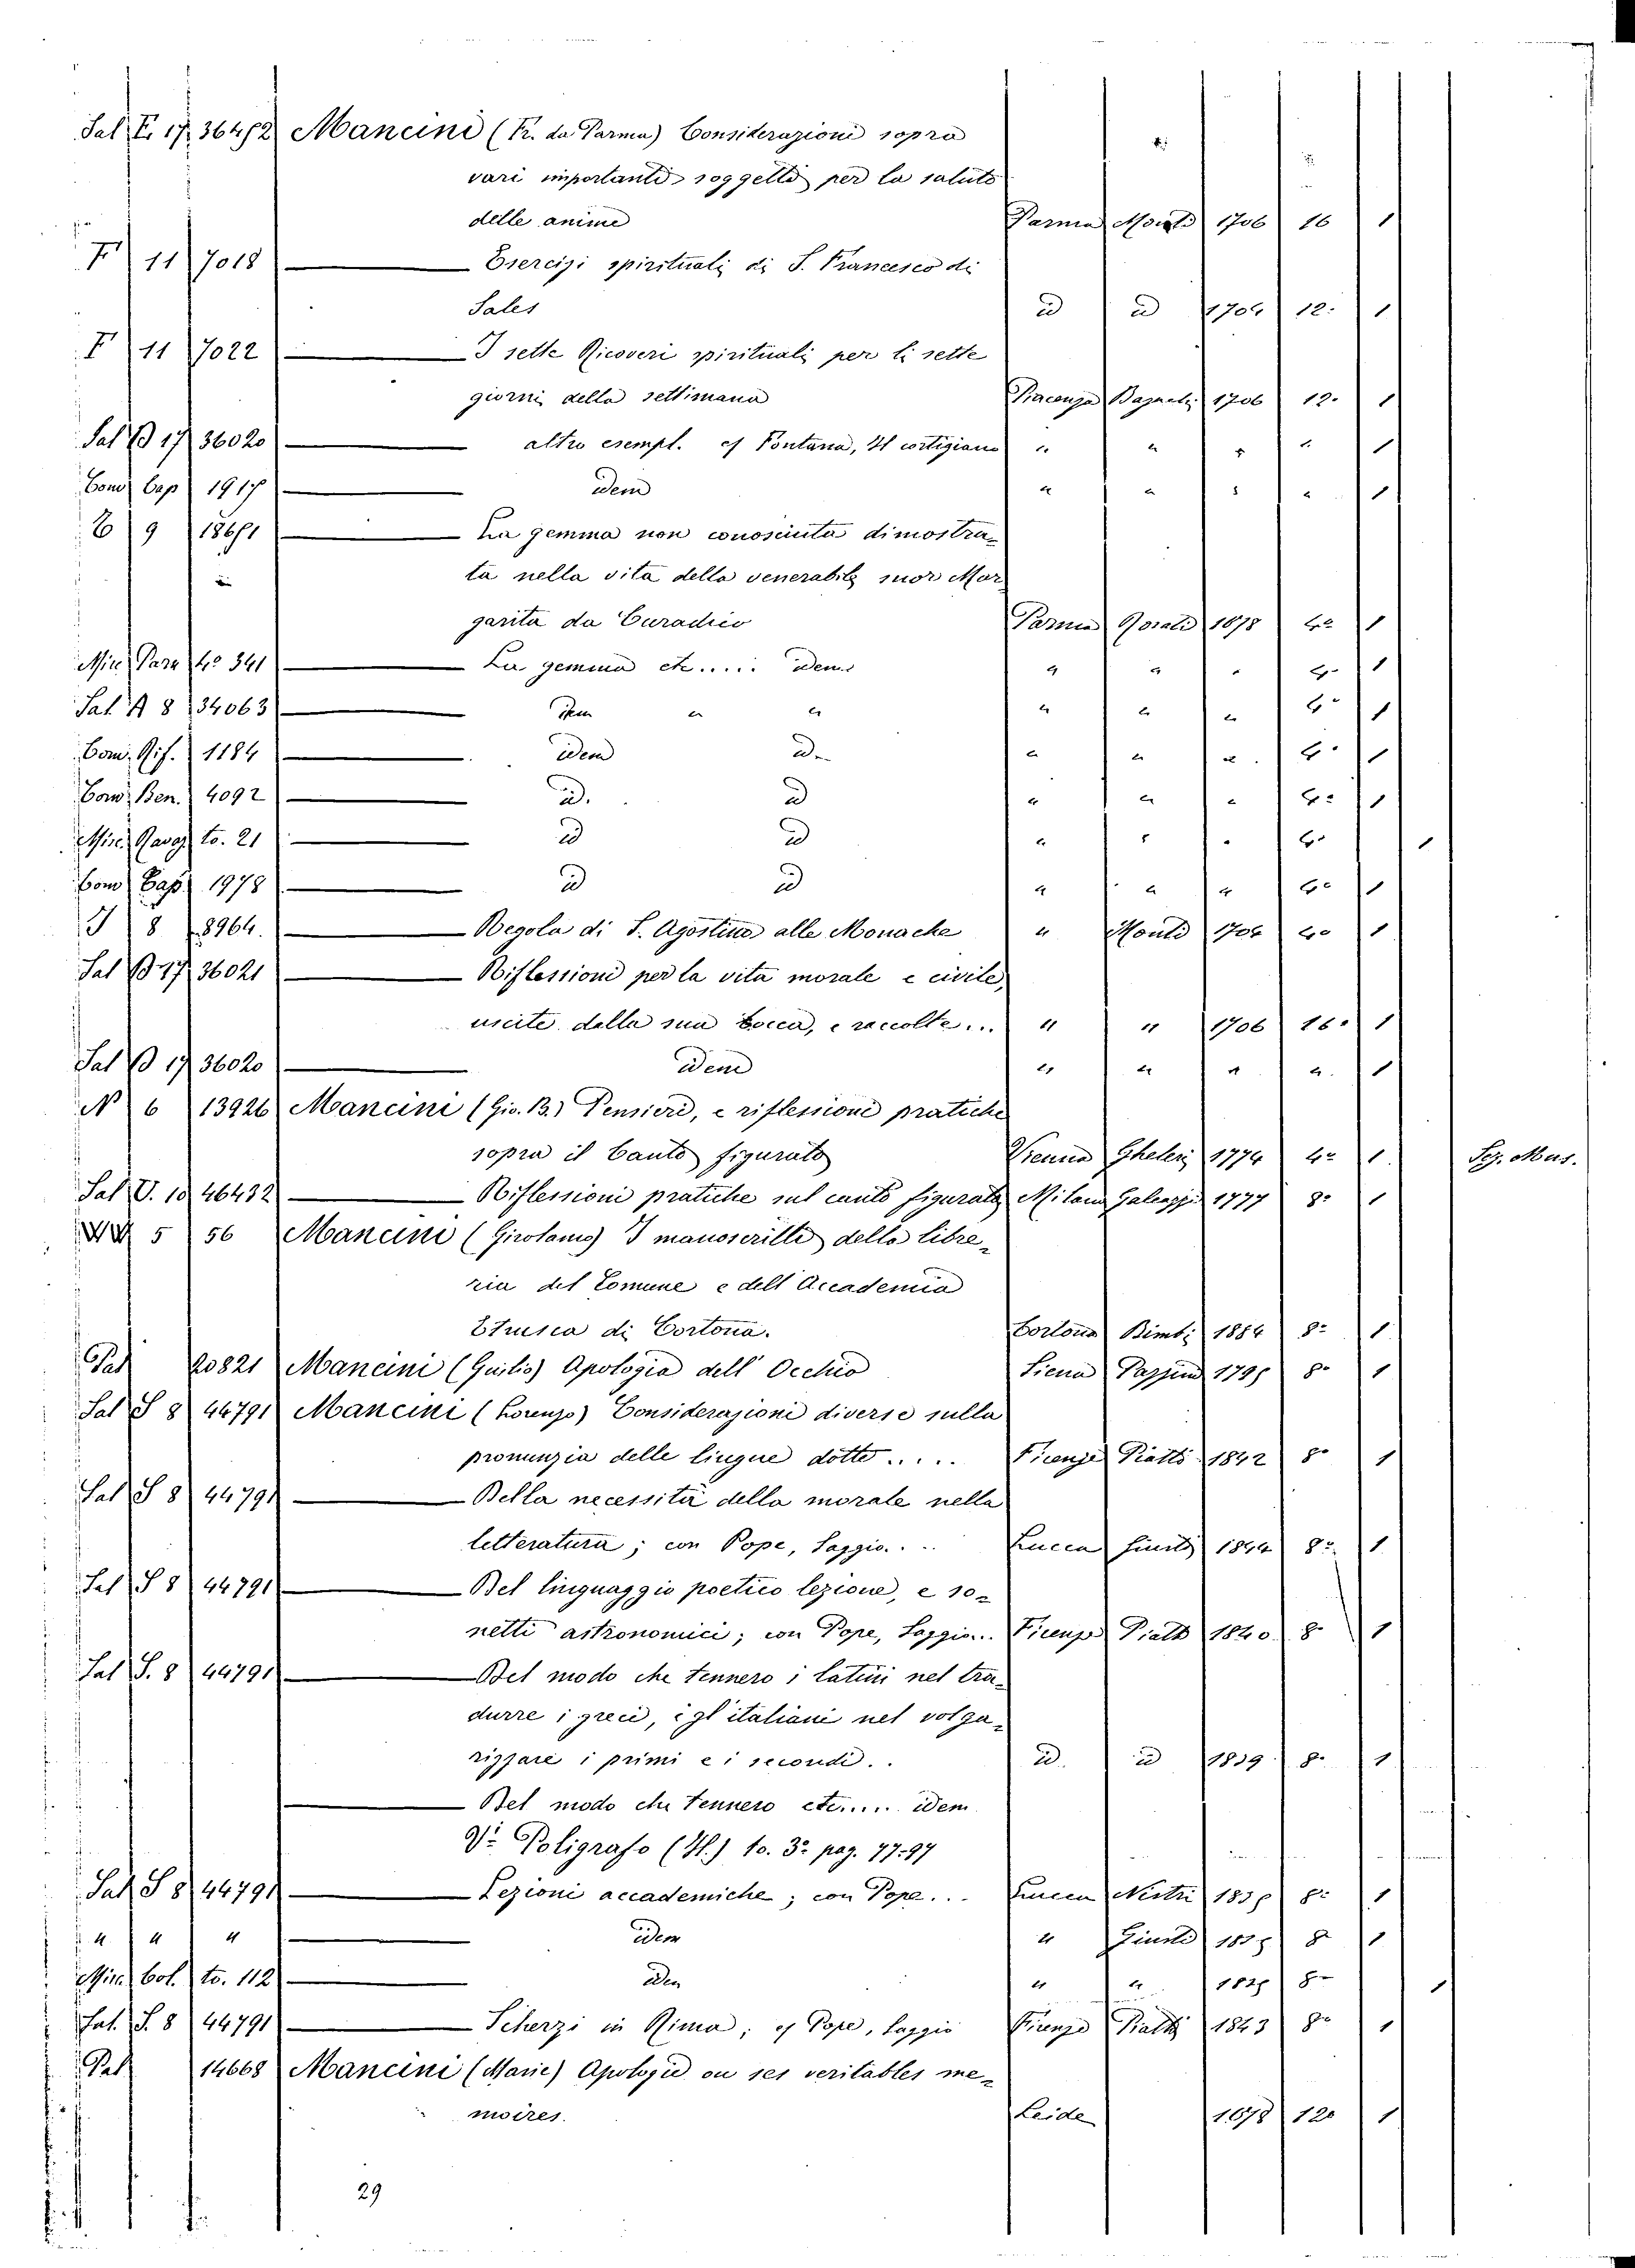 Sal. E. 17. 36452 Mancini (F. da Parma) Considerazioni sopra
vari importanti soggetti per la salute
delle anime Parma Monti 1706 16 1
F 11 7018 Esercizi spirituali di S. Francesco di
Sales id id 1704 12. 1
F 11 7022 I sette Ricoveri spirituali per li sette
giorni della settimana Piacenza Bazachi 1706 12. 1
Sal B 17 36020 altro esempl. cf Fontana, Il cortigiano " " " " 1
Conv Cap 1917 idem " " " " 1
E 9 18651 La gemma non conosciuta dimostra-
ta nella vita della venerabile suor Mar
garita da Curadico Parma Rosati 1678 4° 1
Misc Parm 4° 341 La gemma etc..... idem " " " 4° 1
Sal. A 8 34063 idem " " " " " 4° 1
Com. Rif. 1184 idem id. " " " 4° 1
Conv. Ben. 4092 id. id " " " 4° 1
Misc. Ravag to. 21 id id " " " 4° 1
Conv Cap. 1978 id id " " " 4° 1
I 8 8964. Regola di S. Agostino alle Monache " Monti 1704 4° 1
Sal B 17 36021 Riflessioni per la vita morale e civile,
uscite dalla sua bocca, e raccolte... " " 1706 16. 1
Sal B 17 36020 idem " " " " 1
N 6 13926 Mancini (Gio. B.) Pensieri, e riflessioni pratiche
sopra il Canto figurato Vienna Ghelen 1774 4° 1. Seg. Mus.
Sal. V. 10 46432 Riflessioni pratiche sul canto figurato Milano Galeazzi 1777 8° 1
5 56 Mancini (Girolamo) I manoscritti della libre-
ria del Comune e dell Accademia
Etrusca di Cortona. Cortona Bimbi 1884 8° 1
Pal 20821 Mancini (Guilio) Apologia dell' Occhio Siena Pazzini 1795 8° 1
Sal S 8 44791 Mancini (Lorenzo) Considerazioni diverse sulla
pronunzia delle lingue dotte..... Firenze Piatti 1842 8° 1
Sal S 8 44791 Della necessità della morale nella
letteratura; con Pope, Saggio.... Lucca Giusti 1844 8° 1
Sal S 8 44791 Del linguaggio poetico lezione, e so-
netti astronomici; con Pope, Saggio.. Firenze Piatti 1840 8° 1
Sal S. 8 44791 Del modo che tennero i latini nel tra-
durre i greci, e gl italiani nel volga-
rizzare i primi e i secondi.. id. id 1839 8° 1
Del modo che tennero etc...... idem
V. Poligrafo (Il) to. 3° pag. 77-97
Sal S 8 44791 Lezioni accademiche; con Pope... Lucca Nistri 1835 8° 1
" " " idem " Giusti 1835 8° 1
Misc Col. to. 112 idem " " 1825 8° 1
Sal. S. 8 44791 Scherzi in Rima; cf Pope, Saggio Firenze Piatti 1843 8° 1
Pal 14668 Mancini (Marie) Apologie ou ses veritables me-
moires. Leide 1678 12° 1
29